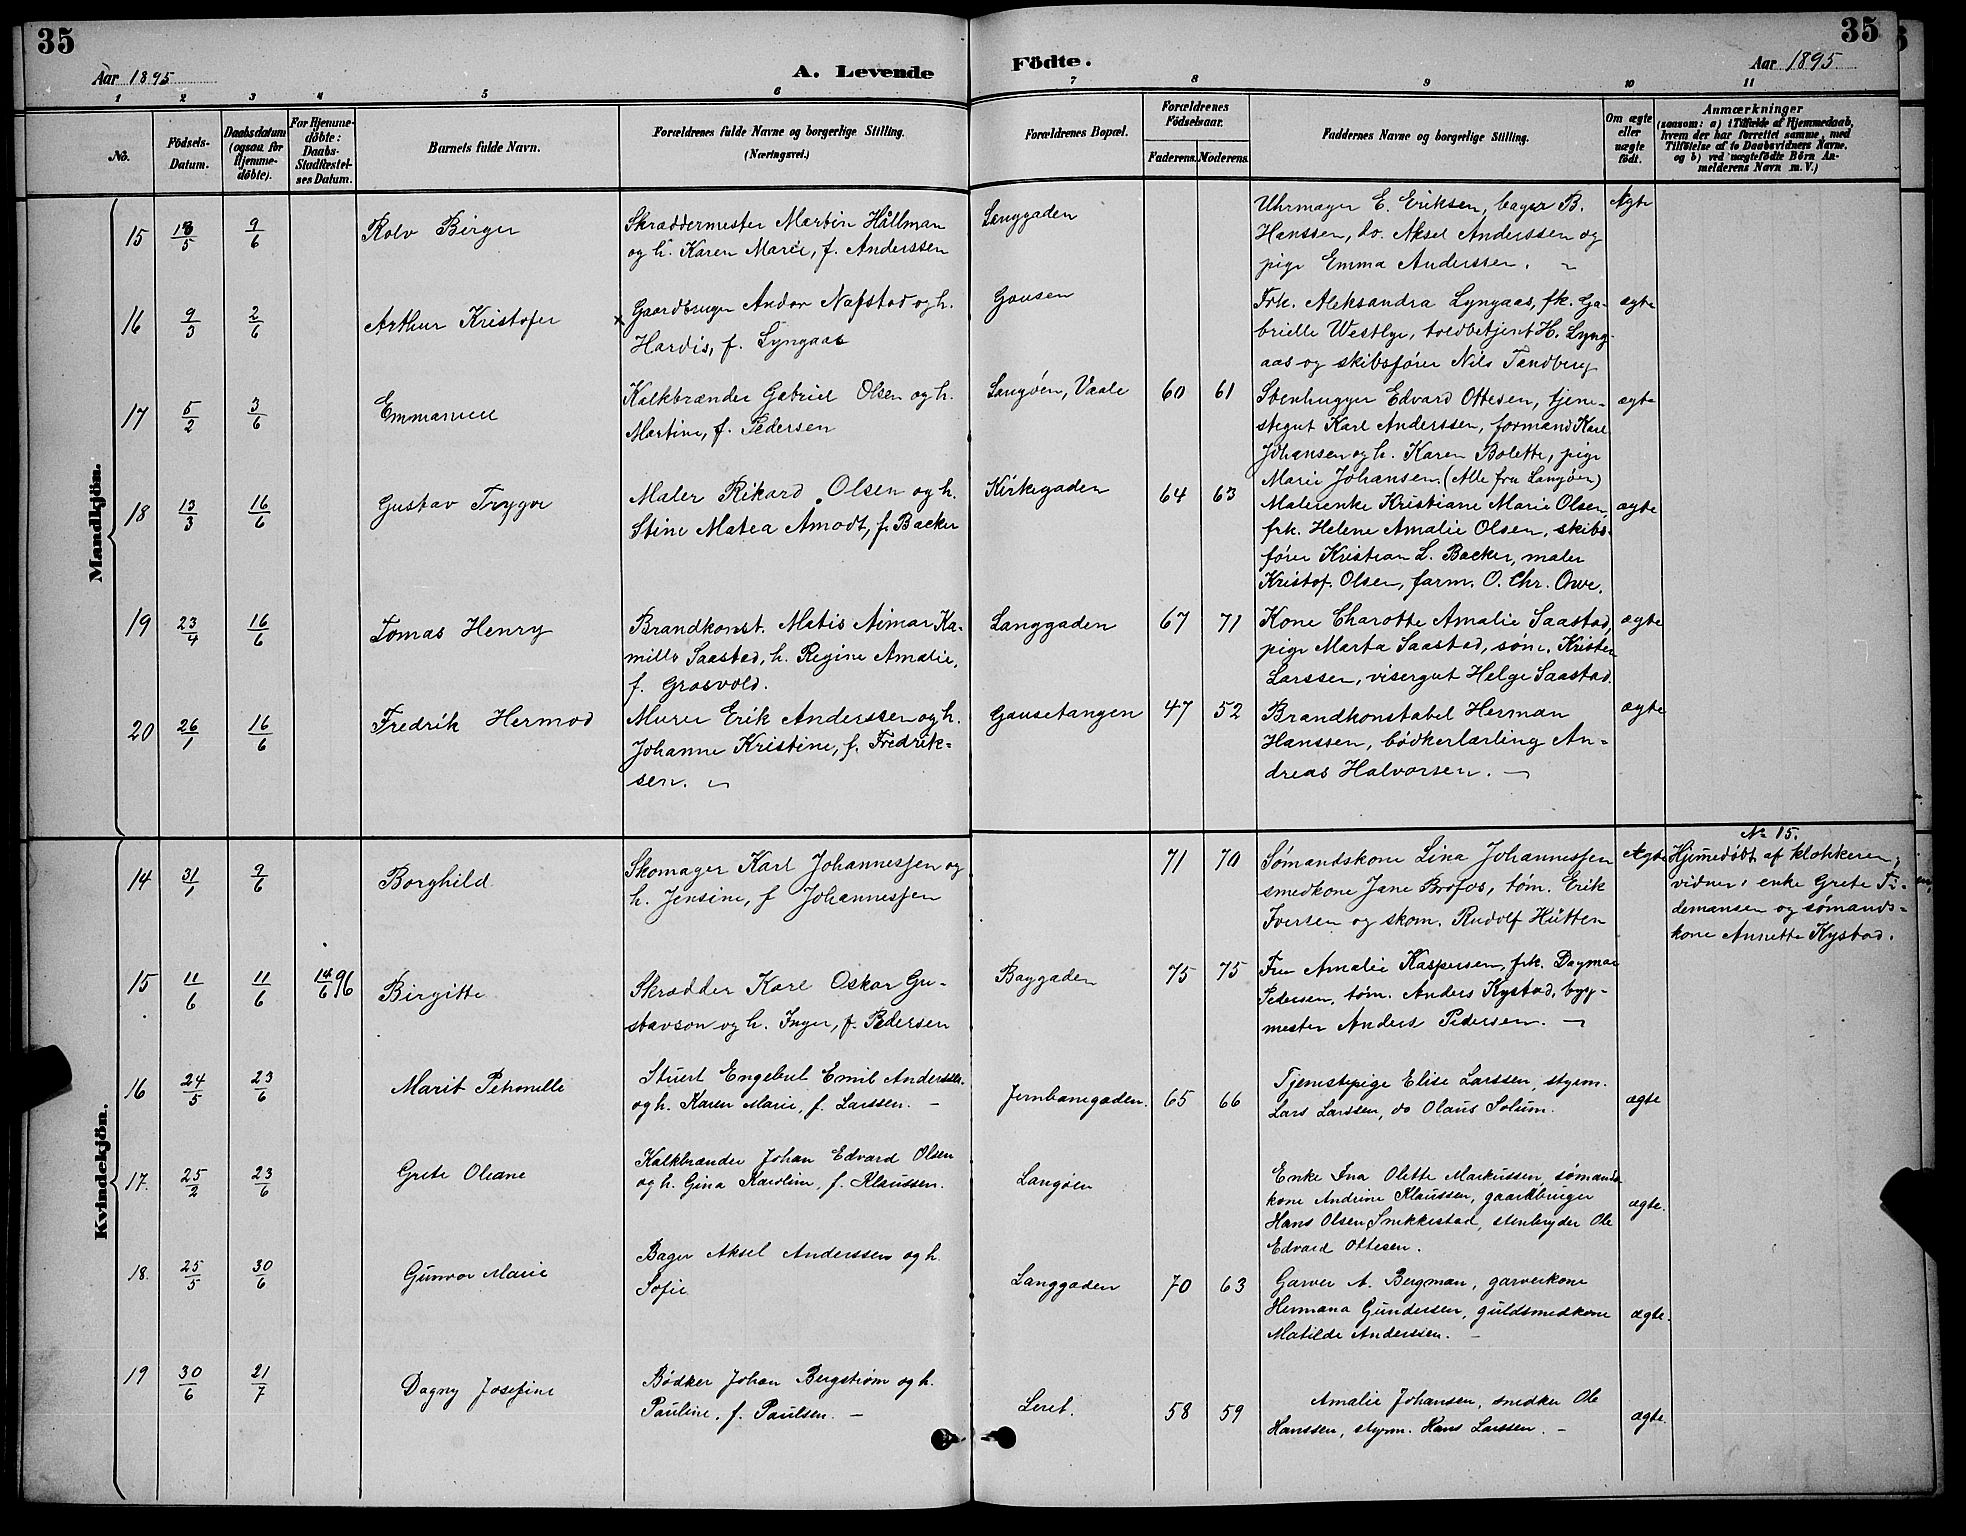 35
35
Aar 1895
A. Levende
Födte.
Aar 1895
1 2 3 4 5 6 7 8 9 10 11
No.
Födsels-
Datum.
Daabsdatum
(ogsaa for
Hjemme-
döbte).
For Hjemme-
döbte:
Daabs-
Stadfæstel-
ses Datum.
Barnets fulde Navn.
Forældrenes fulde Navne og borgerlige Stilling.
(Næringsvei.)
Forældrenes Bopæl.
Forældrenes
Födselsaar.
Faderens. Moderens.
Faddernes Navne og borgerlige Stilling.
Om ægte
eller
uægte
födt.
Anmærkninger
(saasom: a) i Tilfælde af Hjemmedaab,
hvem der har forrettet samme, med
Tilföielse af to Daabsvidners Navne,
og b) ved uægtefödte Börn An-
melderens Navn m. V.)
Mandkjön.
15 18/5 9/6 Rolv Birger
Skræddermester Martin Hållman
og h. Karen Marie, f. Anderssen
Langgaden
Uhrmager E. Eriksen, bager B.
Hanssen, do. Aksel Anderssen og
pige Emma Anderssen.
Ægte
16 9/3 2/6 Arthur Kristofer
x Gaardbruger Andor Nafstad og h.
Hardis, f. Lyngaas
Gausen
Frk. Aleksandra Lyngaas, fk. Ga-
brielle Westlye, toldbetjent H. Lyng-
aas og skibsfører Nils Tandberg
ægte
17 5/2 3/6 Emmanuel
Kalkbrænder Gabriel Olsen og h.
Martine, f. Pedersen
Langøen, Vaale 60 61
Stenhugger Edvard Ottesen, tjene-
stegut Karl Anderssen, formand Karl
Johansen og h. Karen Bolette, pige
Marie Johansen. (Alle fra Langøen)
ægte
18 13/3 16/6 Gustav Trygve
Maler Rikard Olsen og h.
Stine Matea Amodt, f. Backer
Kirkegaden 64 63
Malerenke Kristiane Marie Olsen,
frk. Helene Amalie Olsen, skibs-
fører Kristian L. Backer, maler
Kristof. Olsen, farm. O. Chr. Owe.
ægte
19 23/4 16/6 Tomas Henry
Brandkonst. Matis Aimar Ka-
millo Saastad, h. Regine Amalie,
f. Grosvold.
Langgaden 67 71
Kone Charotte Amalie Saastad,
pige Marta Saastad, søm. Kristen
Larssen, visergut Helge Saastad.
ægte
20 26/1 16/6 Fredrik Hermod
Murer Erik Anderssen og h.
Johanne Kristine, f. Fredrik-
sen.
Gausetangen 47 52
Brandkonstabel Herman
Hanssen, bødkerlærling An-
dreas Halvorsen.
ægte
Kvindekjön.
14 31/1 9/6 Borghild
Skomager Karl Johannessen og
h. Jensine, f Johannessen
71 70
Sømandskone Lina Johannessen
smedkone Jane Brofos, tøm. Erik
Iversen og skom. Rudolf Hütten
Ægte
No 15.
Hjemedøbt af klokkeren,
vidner: enke Grete Ti-
demansen og sømands-
kone Annette Kystad.
15 11/6 11/6 14/6 96 Birgitte
Skrædder Karl Oskar Gu-
stavson og h. Inger, f. Pedersen
Baggaden 75 75
Fru Amalie Kaspersen, frk. Dagmar
Pedersen, tøm. Anders Kystad, byg-
mester Anders Pedersen.
16 24/5 23/6 Marit Petronelle
Stuert Engebret Emil Anderssen
og h. Karen Marie, f. Larssen.
Jernbanegaden. 65 66
Tjenestepige Elise Larssen, styrm.
Lars Larssen, do Olaus Solum.
ægte
17. 25/2 23/6 Grete Oleane
Kalkbrænder Johan Edvard Olsen
og h. Gina Karoline, f. Klaussen.
Langøen
Enke Ina Olette Markussen, sømands-
kone Andrine Klaussen, gaardbruger
Hans Olsen Snekkestad, stenbryder Ole
Edvard Ottesen.
ægte.
18. 25/5 30/6 Gunvor Marie
Bager Aksel Anderssen og h.
Sofie
Langgaden 70 63
Garver A. Bergman, garverkone
Hermana Gundersen, guldsmedkone
Matilde Anderssen.
ægte.
19 30/6 21/7 Dagny Josefine
Bødker Johan Bergstrøm og h.
Pauline, f. Paulsen.
Leret. 58 59
Amalie Johansen, snedker Ole
Hanssen, styrm. Hans Larssen.
ægte.